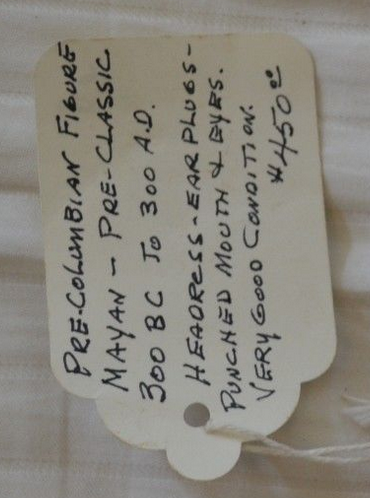 PRE-COLUMBIAN FIGURE
MAYAN - PRE-CLASSIC
300 BC TO 300 A.D.
HEADRESS - EAR PLUGS -
PUNCHED MOUTH & EYES.
VERY GOOD CONDITION.
$450.00